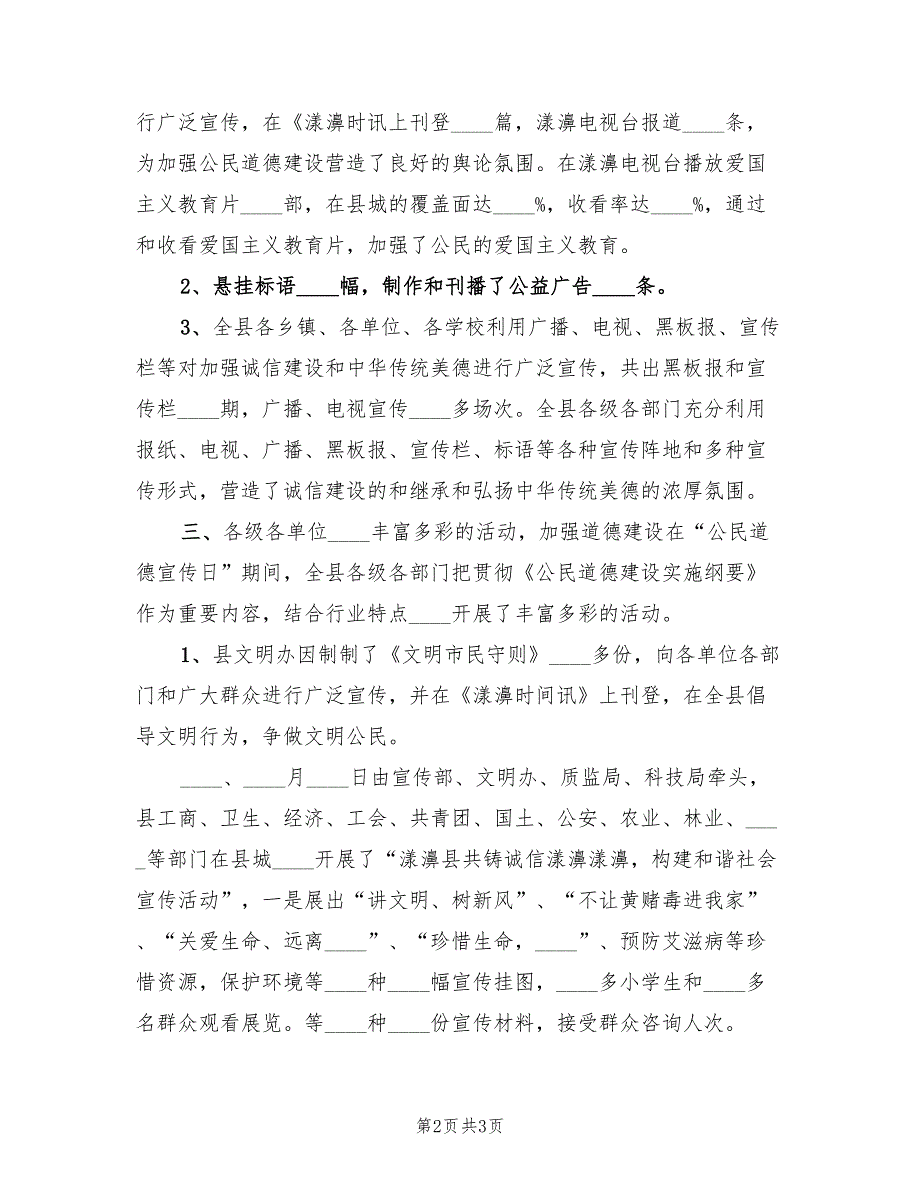 行广泛宣传，在《漾濞时讯上刊登____篇，漾濞电视台报道____条，
为加强公民道德建设营造了良好的舆论氛围。在漾濞电视台播放爱国
主义教育片____部，在县城的覆盖面达____%，收看率达____%，通过
和收看爱国主义教育片，加强了公民的爱国主义教育。
2、悬挂标语____幅，制作和刊播了公益广告____条。
3、全县各乡镇、各单位、各学校利用广播、电视、黑板报、宣传
栏等对加强诚信建设和中华传统美德进行广泛宣传，共出黑板报和宣
传栏____期，广播、电视宣传____多场次。全县各级各部门充分利用
报纸、电视、广播、黑板报、宣传栏、标语等各种宣传阵地和多种宣
传形式，营造了诚信建设的和继承和弘扬中华传统美德的浓厚氛围。
三、各级各单位____丰富多彩的活动，加强道德建设在“公民道
德宣传日”期间，全县各级各部门把贯彻《公民道德建设实施纲要》
作为重要内容，结合行业特点____开展了丰富多彩的活动。
1、县文明办因制制了《文明市民守则》____多份，向各单位各部
门和广大群众进行广泛宣传，并在《漾濞时间讯》上刊登，在全县倡
导文明行为，争做文明公民。
____、____月____日由宣传部、文明办、质监局、科技局牵头，
县工商、卫生、经济、工会、共青团、国土、公安、农业、林业、___
_等部门在县城____开展了“漾濞县共铸诚信漾濞漾濞，构建和谐社会
宣传活动”，一是展出“讲文明、树新风”、“不让黄赌毒进我家”
、“关爱生命、远离____”、“珍惜生命，____”、预防艾滋病等珍
惜资源，保护环境等____种____幅宣传挂图，____多小学生和____多
名群众观看展览。等____种____份宣传材料，接受群众咨询人次。
第2页 共3页